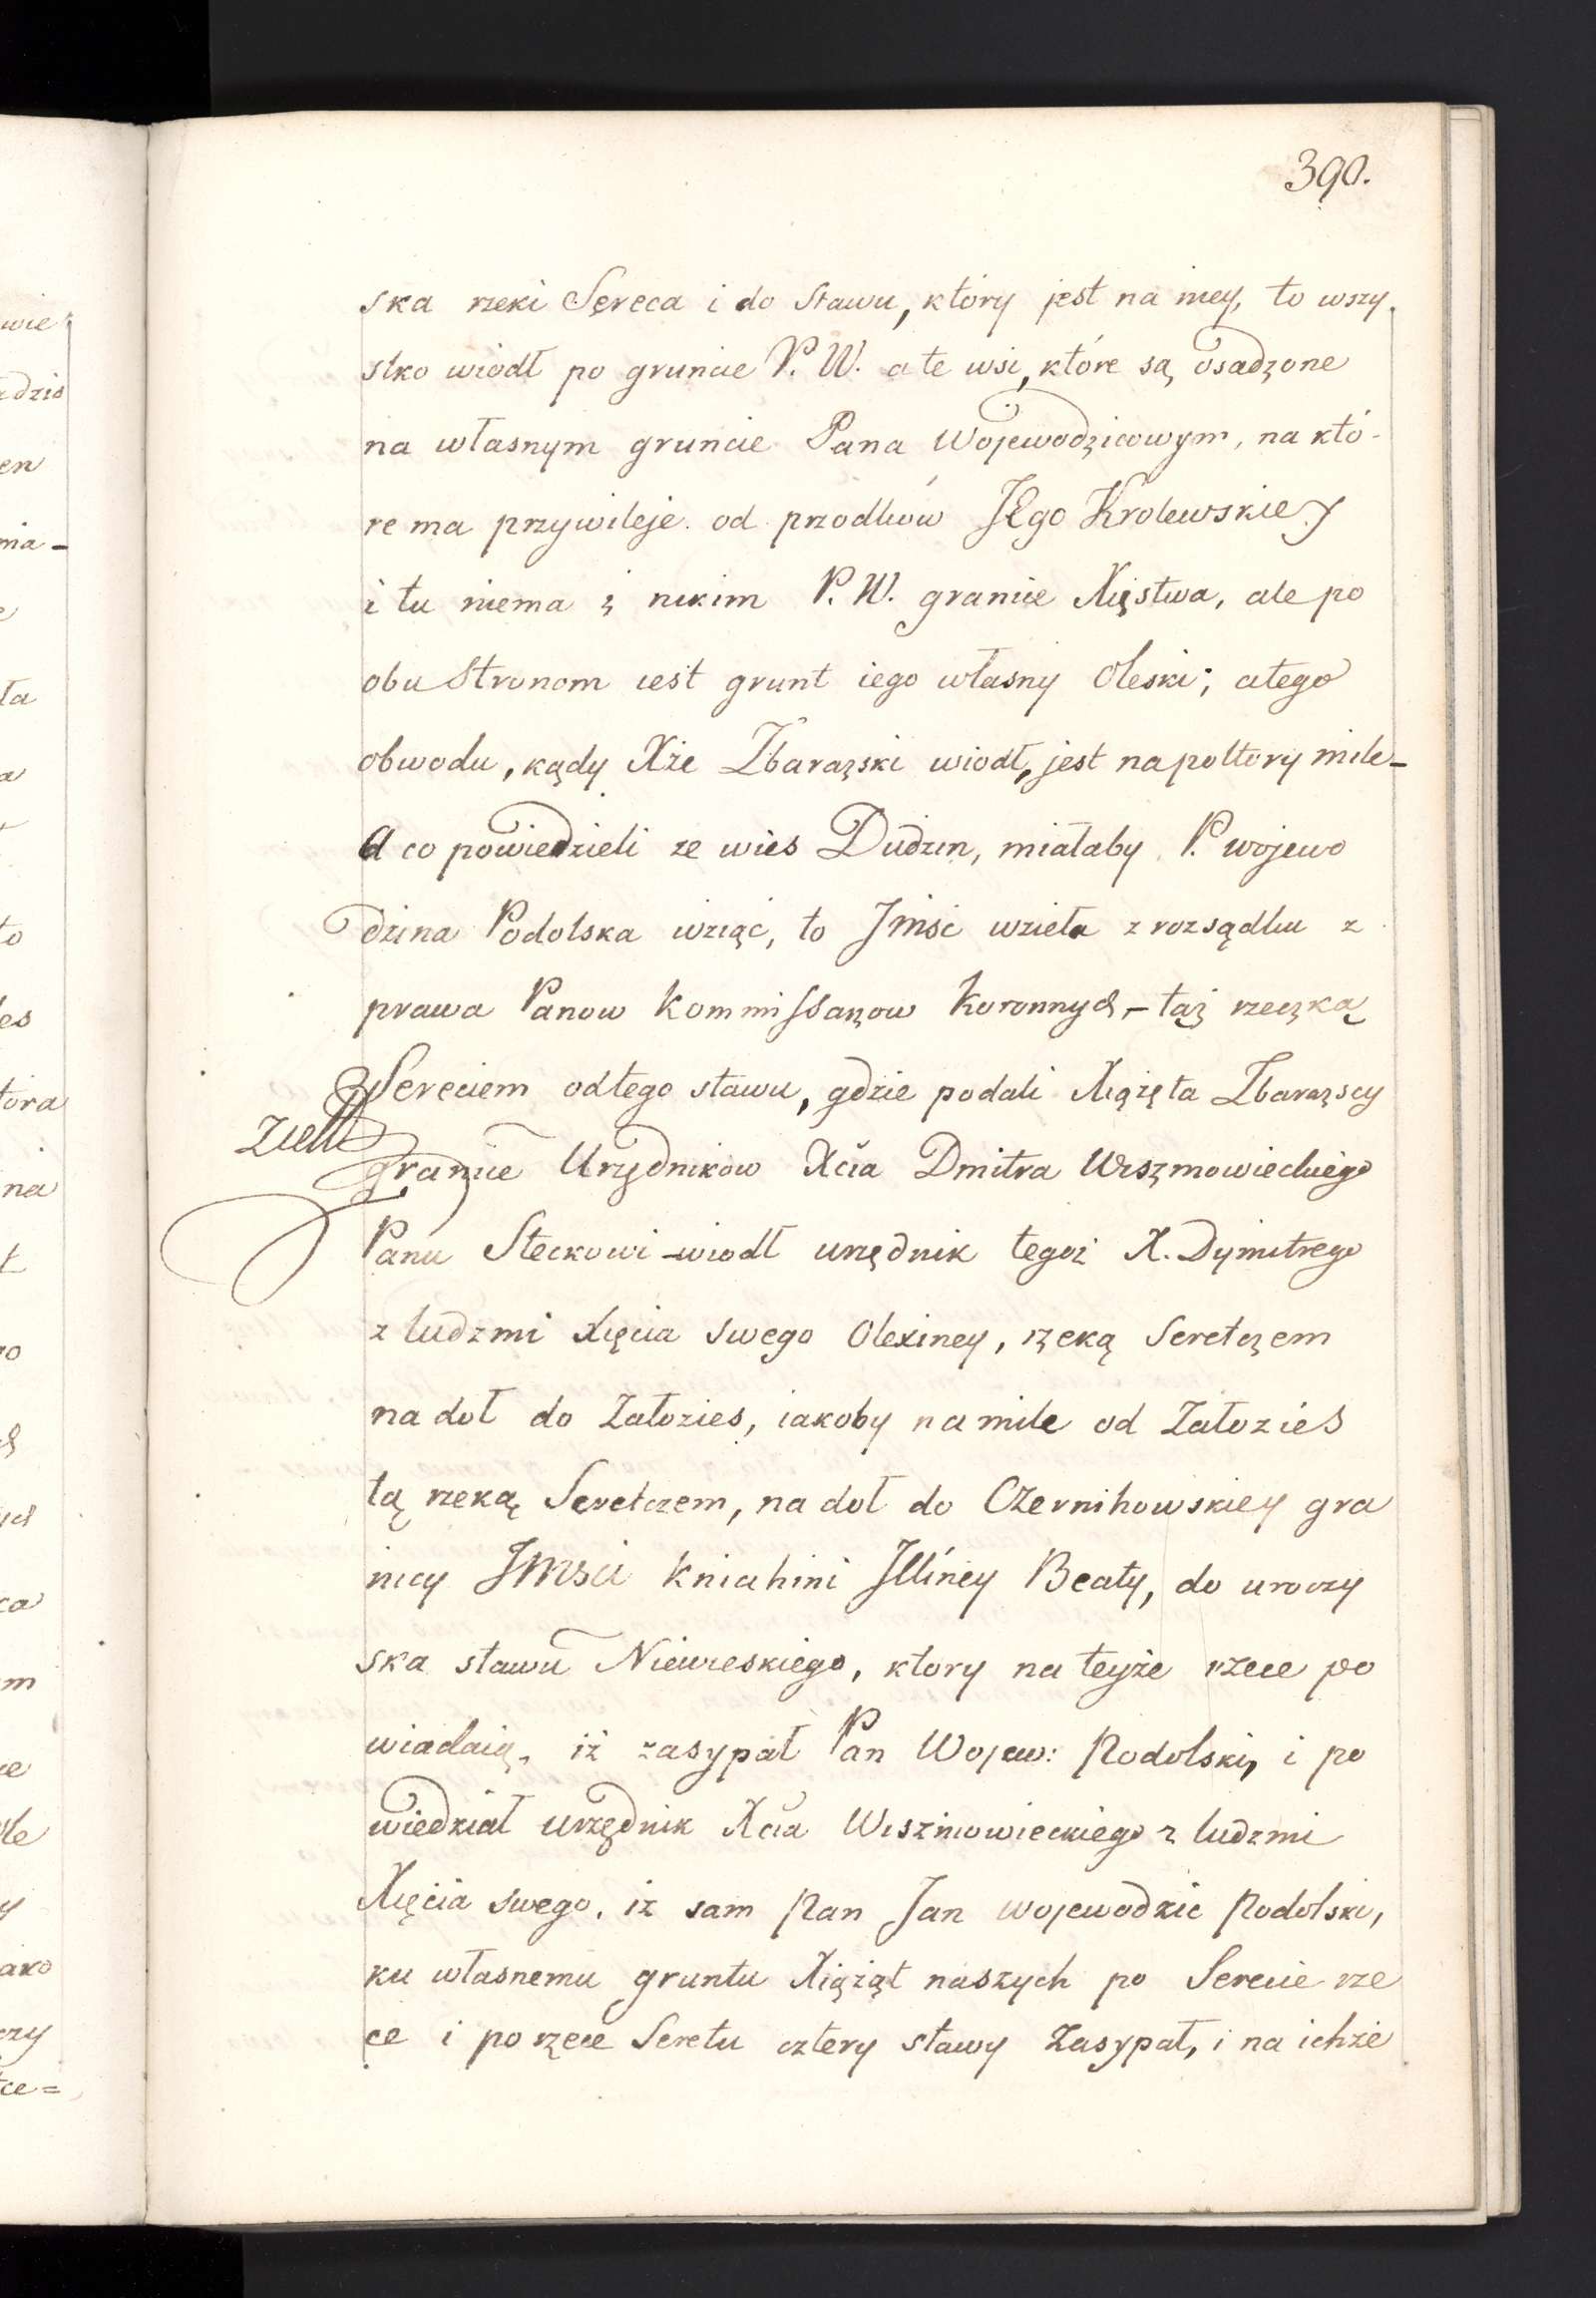 390.
ska rzeki Sereca i do stawu, który jest na niey, to wszy
stko wiodł po gruncie P. W. a te wsi, które są osadzone
na własnym gruncie Pana Wojewodzicowym, na któ-
re ma przywileje od przodków JEgo Krolewskiey
i tu niema z nikim P. W. granice Xięstwa, ale po
obu stronom iest grunt iego własny Oleski; a tego
obwodu, kądy Xże Zbarazski wiodł, jest na poltory mile-
A co powiedzieli ze wies Dudzin, miałaby P. wojewo
dzina Podolska wziąć, to Jmść wzieła z rozsądku z
prawa Panow Kommissarzow Koronnych - taż rzeczką
Sereciem od tego stawu, gdzie podali Xiążęta Zbarazscy
granice Urzędnikow Xcia Dmitra Wiszniowieckiego
Panu Steckowi - wiodł urzędnik tegoż X. Dymitrego
z ludzmi Xięcia swego Olexiney, rzeką Seretczem
na doł do Załozies, iakoby na mile od Załozies
tą rzeką Seretczem, na doł do Czernihowskiey gra
nicy JMsci Kniahini Jlliney Beaty, do uroczy
ska stawu Niewieskiego, ktory na teyże rzece po
wiadaią, iż zasypał Pan Wojew: Podolski, i po
wiedział urzędnik Xcia Wiszniowieckiego z ludzmi
Xięcia swego, iż sam Pan Jan wojewodzic Podolski,
ku własnemu gruntu Xiążąt naszych po Serecie rze
ce i po rzece Seretu cztery stawy zasypał, i na ichże